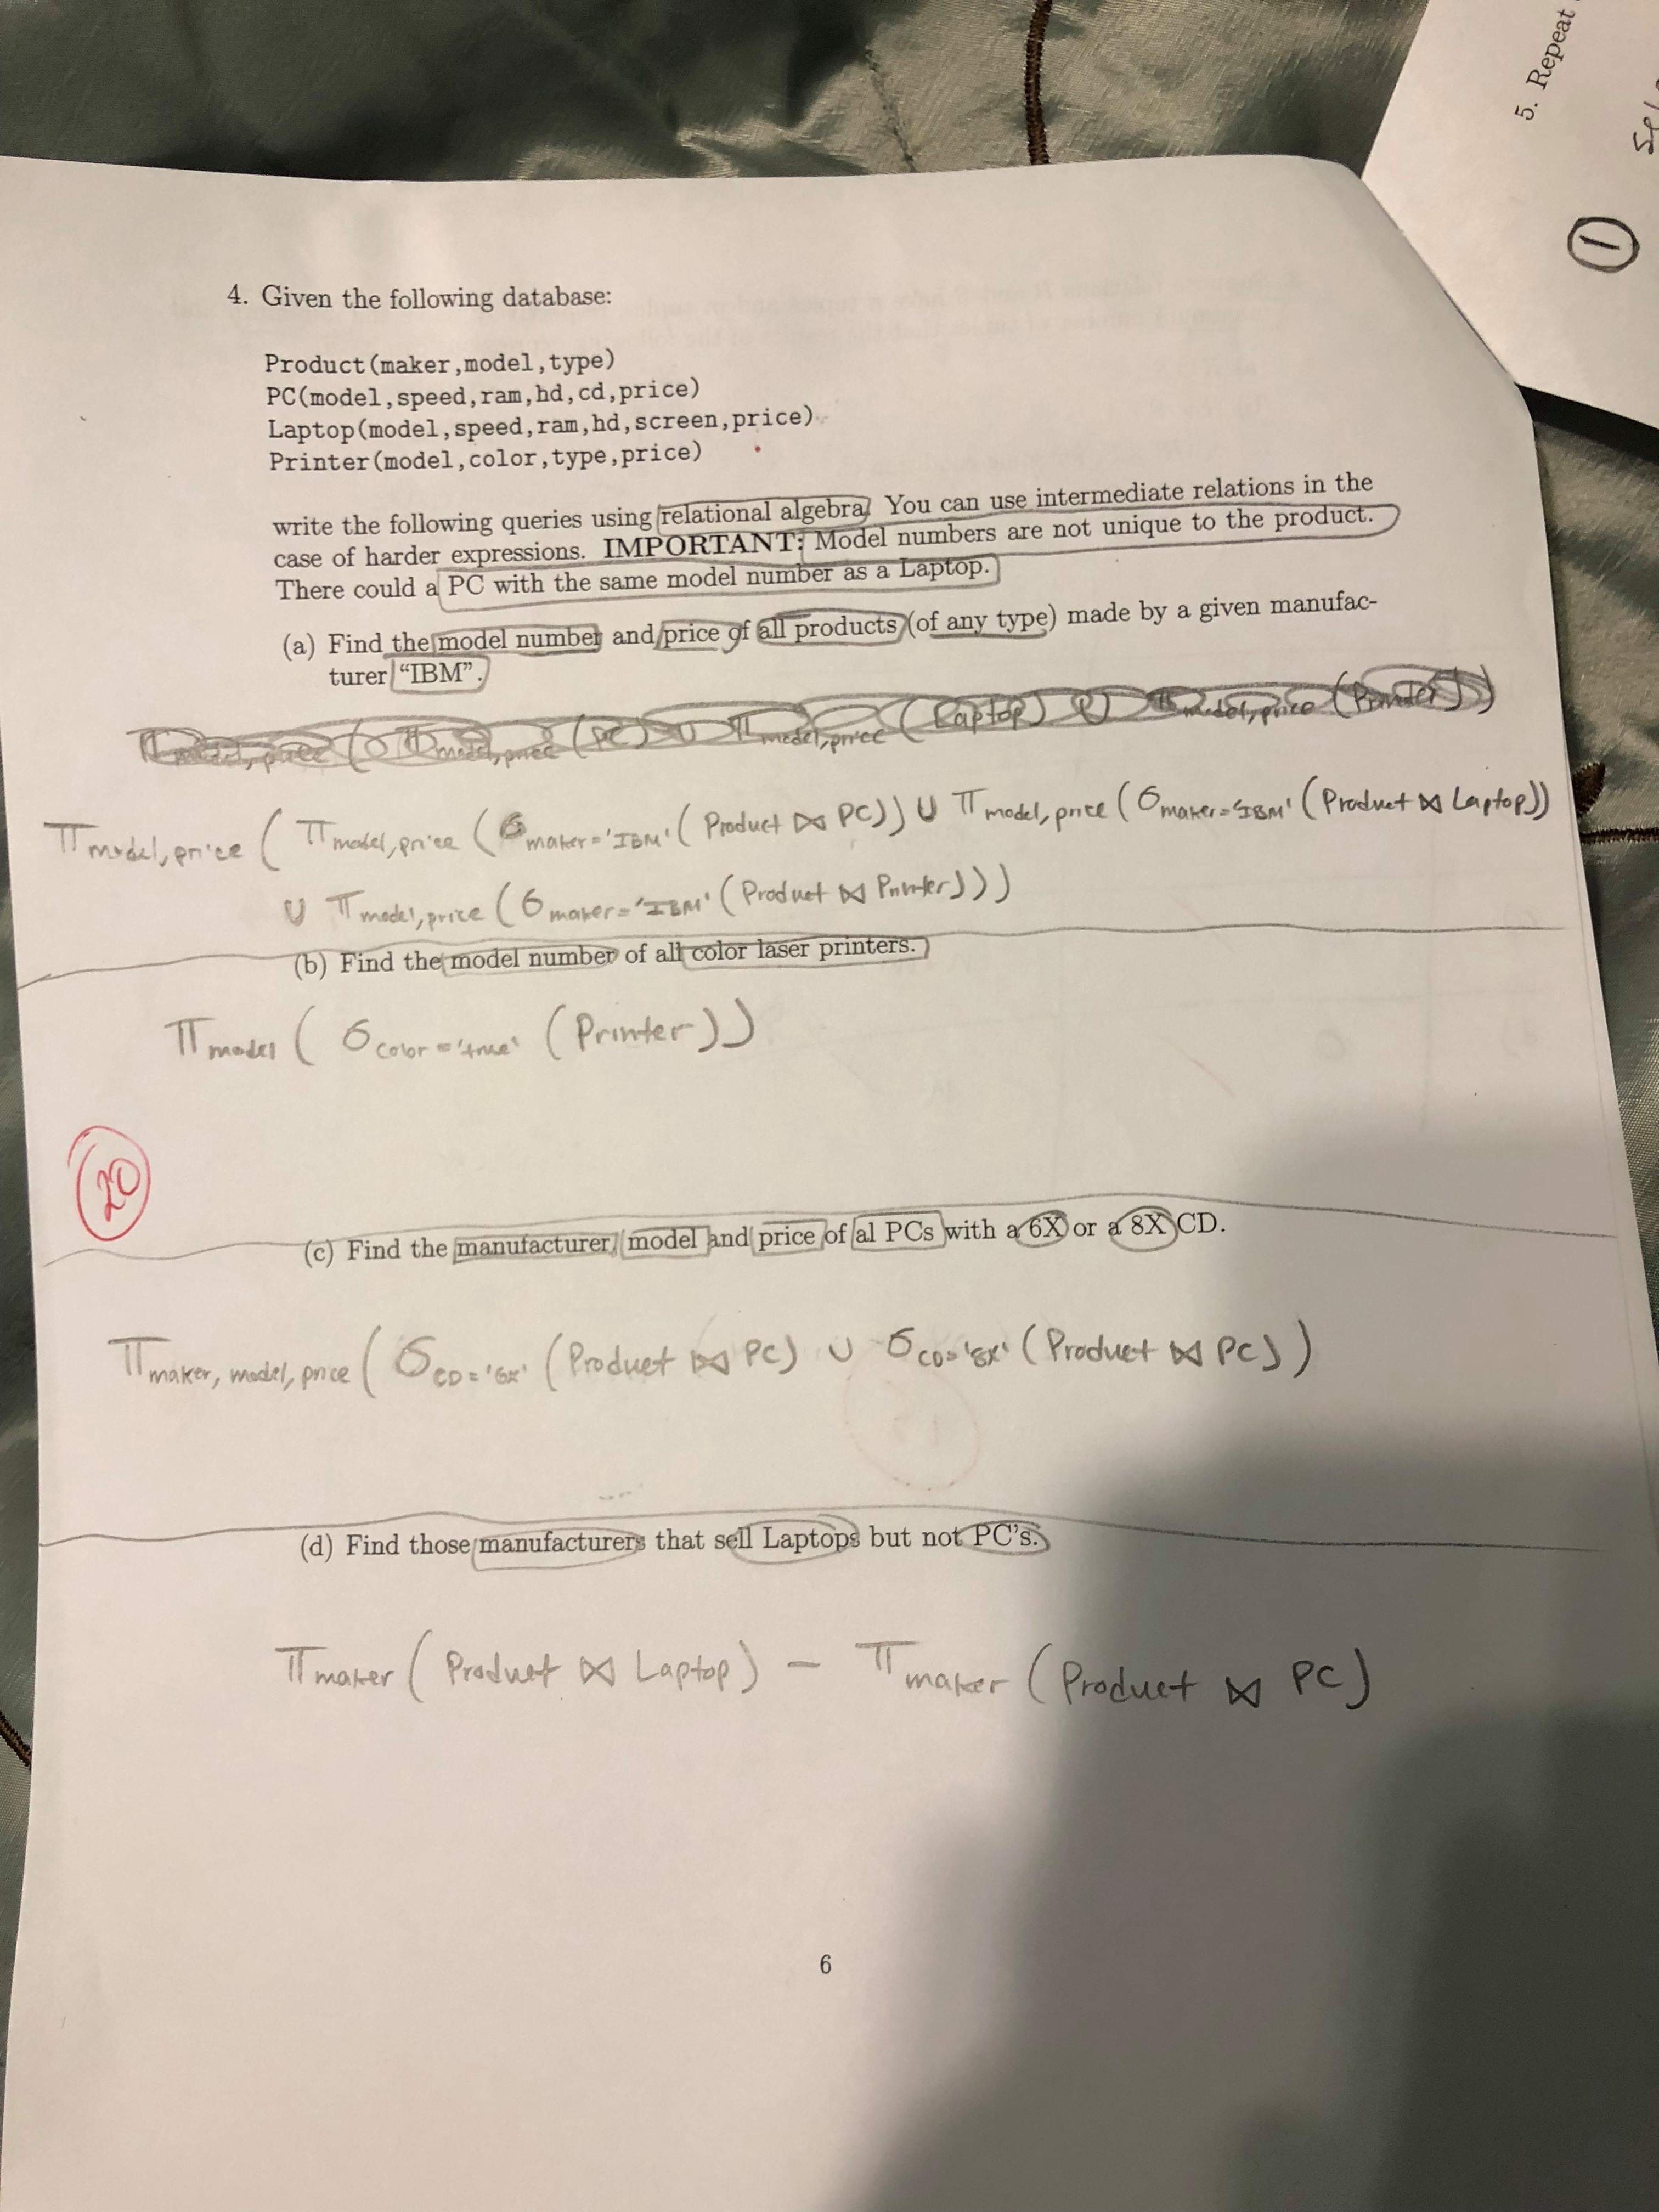 5. Repeat
1
4. Given the following database:
Product(maker,model,type)
PC(model,speed,ram,hd,cd,price)
Laptop(model,speed,ram,hd,screen,price)
Printer(model,color,type,price)
write the following queries using relational algebra. You can use intermediate relations in the
case of harder expressions. IMPORTANT: Model numbers are not unique to the product.
There could a PC with the same model number as a Laptop.
(a) Find the model number and price of all products (of any type) made by a given manufac-
turer "IBM".
π model, price ( π model, price (PC) ∪ π model, price (Laptop) ∪ π model, price (Printer))
π model, price ( π model, price ( σ maker='IBM' ( Product ⋈ PC)) ∪ π model, price ( σ maker='IBM' ( Product ⋈ Laptop))
∪ π model, price ( σ maker='IBM' ( Product ⋈ Printer)))
(b) Find the model number of all color laser printers.
π model ( σ color='true' (Printer))
20
(c) Find the manufacturer, model and price of al PCs with a 6X or a 8X CD.
π maker, model, price ( σ CD='6X' (Product ⋈ PC) ∪ σ CD='8X' (Product ⋈ PC))
(d) Find those manufacturers that sell Laptops but not PC's.
π maker ( Product ⋈ Laptop) − π maker ( Product ⋈ PC)
6